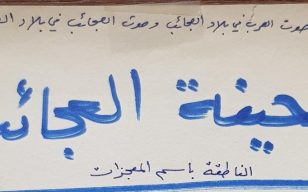 صوت العرب في بلاد العجائب وصوت العجائب في بلاد الع
حيفة العجائ
الناطقة باسم المعجزات